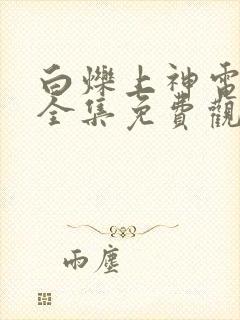 白爍上神電
全集免費觀
雨塵